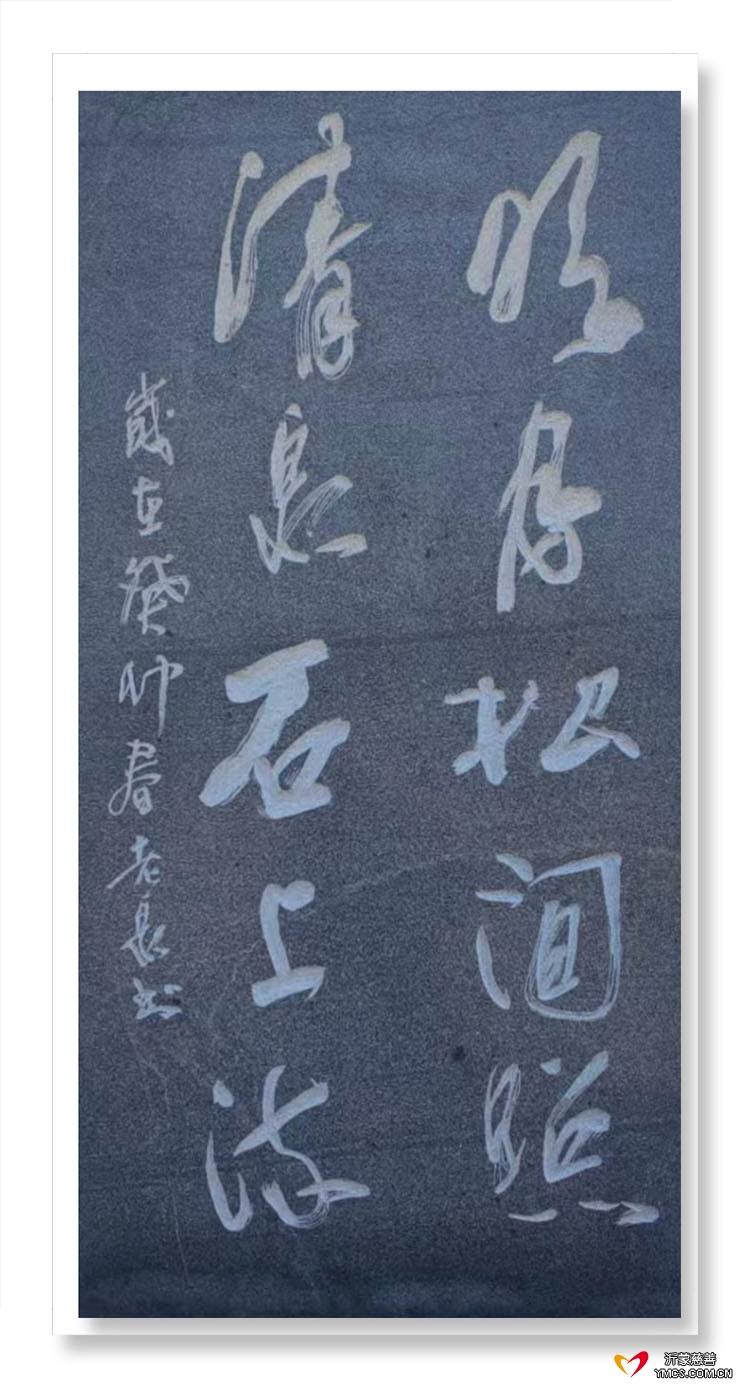 明月松间照
清泉石上流
歲在癸卯春老泉书
沂蒙慈善
YMCS.COM.CN